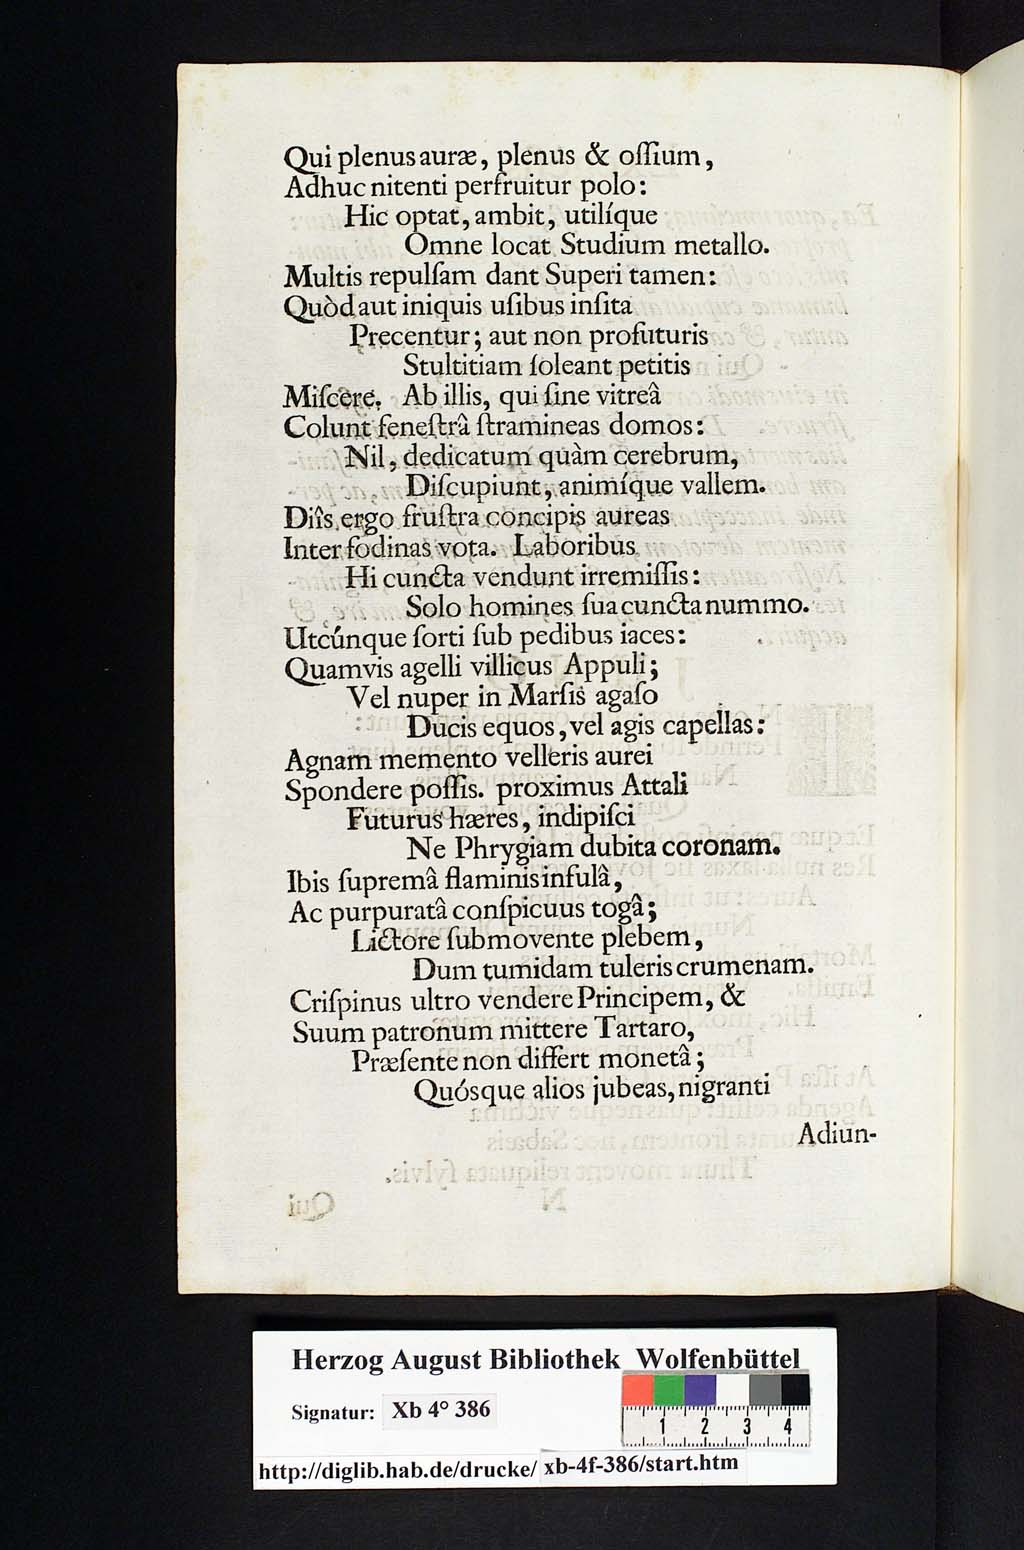 Qui plenus auræ, plenus & oſſium,
Adhuc nitenti perfruitur polo:
Hic optat, ambit, utilíque
Omne locat Studium metallo.
Multis repulſam dant Superi tamen:
Quòd aut iniquis uſibus inſita
Precentur; aut non profuturis
Stultitiam ſoleant petitis
Miſcere. Ab illis, qui ſine vitreâ
Colunt feneſtrâ ſtramineas domos:
Nil, dedicatum quàm cerebrum,
Diſcupiunt, animíque vallem.
Diîs ergo fruſtra concipis aureas
Inter fodinas vota. Laboribus
Hi cuncta vendunt irremiſſis:
Solo homines ſua cuncta nummo.
Utcúnque ſorti ſub pedibus iaces:
Quamvis agelli villicus Appuli;
Vel nuper in Marſis agaſo
Ducis equos, vel agis capellas:
Agnam memento velleris aurei
Spondere poſſis. proximus Attali
Futurus hæres, indipiſci
Ne Phrygiam dubita coronam.
Ibis ſupremâ flaminis inſulâ,
Ac purpuratâ conſpicuus togâ;
Lictore ſubmovente plebem,
Dum tumidam tuleris crumenam.
Criſpinus ultro vendere Principem, &
Suum patronum mittere Tartaro,
Præſente non differt monetâ;
Quósque alios jubeas, nigranti
Adiun-
Herzog August Bibliothek Wolfenbüttel
Signatur: Xb 4° 386
1 2 3 4
http://diglib.hab.de/drucke/ xb-4f-386/start.htm